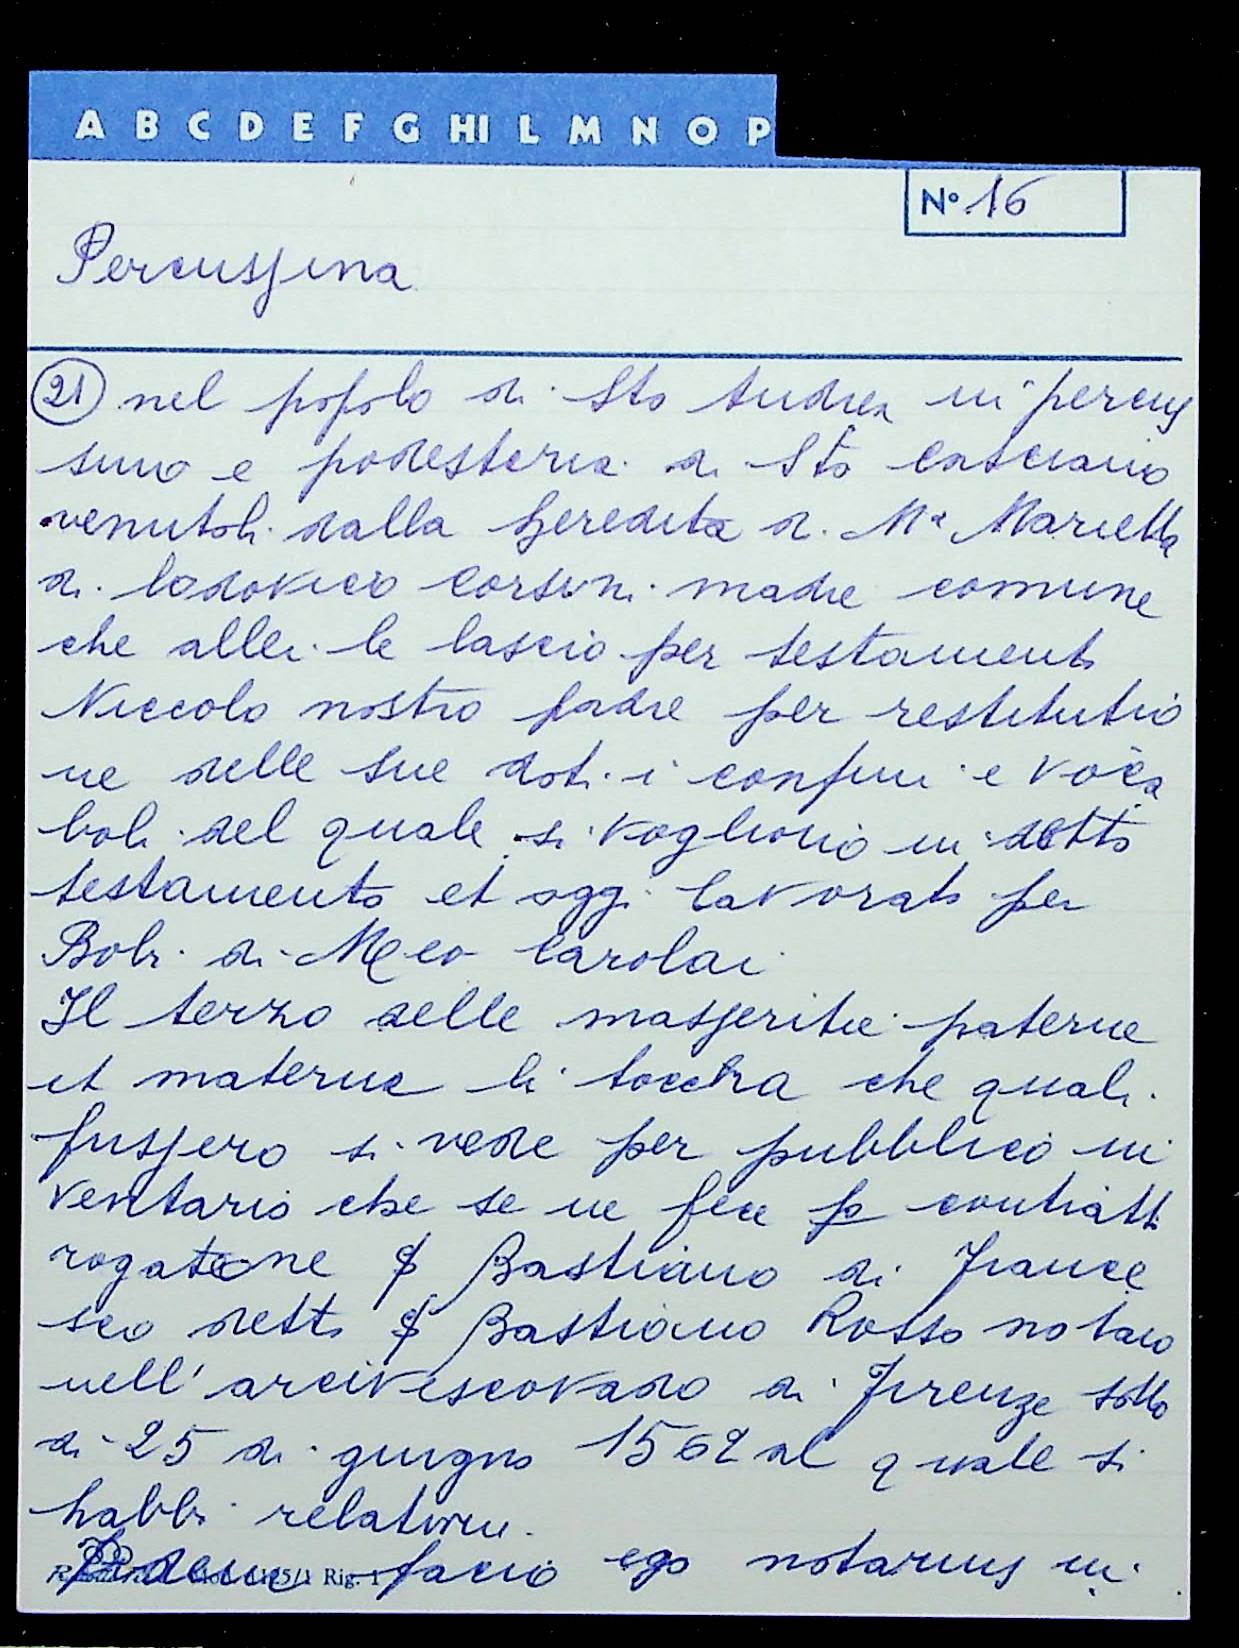 A B C D E F G HI L M N O P
N° 16
Percussina
21 nel popolo di Sto Andrea in percus
sino e podesteria di Sto Casciano
venutoli dalla heredita di Ma Marietta
di lodovico Corsini madre comune
che allei le lascio per testamento
Niccolo nostro padre per restitutio
ne delle sue doti i confini e voca
boli del quale si vogliono in detto
testamento et oggi lavorato per
di Meo Carolai
Il terzo delle masseritie paterne
et materne li toccha che quali
fussero si vede per pubblico in
ventario che se ne fece p contratt
rogatone S Bastiano di France
sco detto S Bastiano Rosso notaio
nell'arcivescovado di Firenze sotto
di 25 di giugno 1562 al quale si
habbi relatione.
facio ego notarius in
Rig. 1